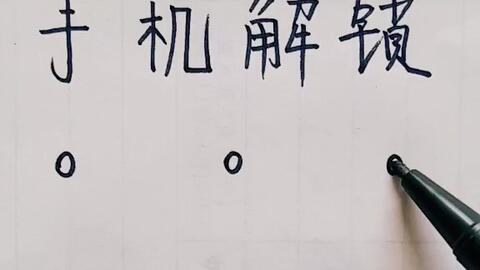 手机解锁